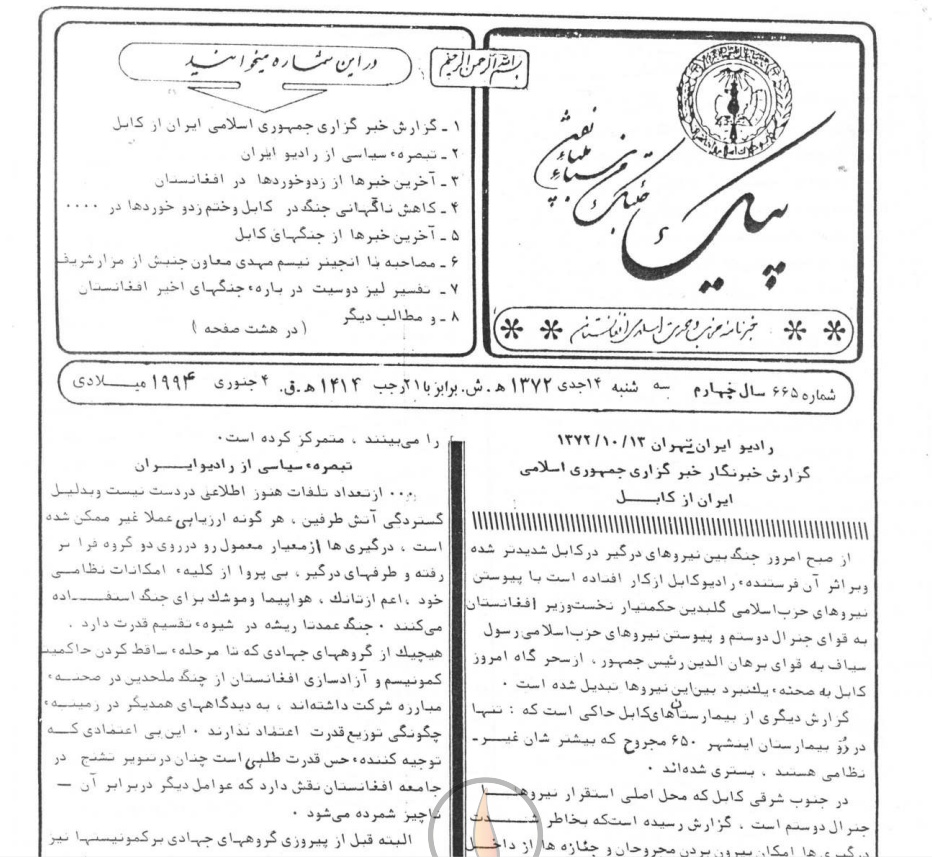 بسم الله الرحمن الرحیم
پیک
خبرنامه حزب وحدت اسلامی افغانستان
در این شماره میخوانید
۱ ـ گزارش خبر گزاری جمهوری اسلامی ایران از کابل
۲ ـ تبصرهء سیاسی از رادیو ایران
۳ ـ آخرین خبرها از زدوخوردها در افغانستان
۴ ـ کاهش ناگهانی جنگ در کابل وختم زدو خوردها در ۰۰۰۰
۵ ـ آخرین خبرها از جنگهای کابل
۶ ـ مصاحبه با انجینر نسیم مهدی معاون جنبش از مزارشریف
۷ ـ تفسیر لیز دوسیت در بارهء جنگهای اخیر افغانستان
۸ ـ و مطالب دیگر
( در هشت صفحه )
شماره ۶۶۵ سال چهارم سه شنبه ۱۴جدی ۱۳۷۲ هـ.ش. برابر با ۲۱رجب ۱۴۱۴ هـ.ق. ۴ جنوری ۱۹۹۴ میلادی
رادیو ایران تهران ۱۳۷۲/۱۰/۱۳
گزارش خبرنگار خبر گزاری جمهوری اسلامی
ایران از کابل
از صبح امروز جنگ بین نیروهای درگیر درکابل شدیدتر شده
وبر اثر آن فرستندهء رادیوکابل ازکار افتاده است با پیوستن
نیروهای حزب اسلامی گلبدین حکمتیار نخست وزیر افغانستان
به قوای جنرال دوستم و پیوستن نیروهای حزب اسلامی رسول
سیاف به قوای برهان الدین رئیس جمهور ، ازسحر گاه امروز
کابل به صحنهء یک نبرد بین این نیروها تبدیل شده است ۰
گزارش دیگری از بیمارستانهای کابل حاکی است که : تنها
در دو بیمارستان اینشهر ۶۵۰ مجروح که بیشتر شان غیر ـ
نظامی هستند ، بستری شده اند ۰
در جنوب شرقی کابل که محل اصلی استقرار نیروهـا
جنرال دوستم است ، گزارش رسیده است که بخاطر شدت
درگیری ها امکان بیرون بردن مجروحان و جنازه ها از داخل
را می بینند ، متمرکز کرده است۰
تبصرهء سیاسی از رادیو ایران
۰۰۰ ازتعداد تلفات هنوز اطلاعی دردست نیست وبدلیل
گستردگی آتش طرفین ، هر گونه ارزیابی عملا غیر ممکن شده
است ، درگیری ها ازمعیار معمول رو درروی دو گروه فرا تر
رفته و طرفهای درگیر ، بی پروا از کلیهء امکانات نظامی
خود ،اعم ازتانک ، هواپیما وموشک برای جنگ استفاده
می کنند ۰ جنگ عمدتا ریشه در شیوهء تقسیم قدرت دارد .
هیچیک از گروههای جهادی که تا مرحلهء ساقط کردن حاکمیت
کمونیسم و آزادسازی افغانستان از چنگ ملحدین در صحنهء
مبارزه شرکت داشته اند ، به دیدگاههای همدیگر در زمینهء
چگونگی توزیع قدرت اعتماد ندارند ۰ این بی اعتمادی کـه
توجیه کنندهء حس قدرت طلبی است چنان درتنویر تشنج در
جامعه افغانستان نقش دارد که عوامل دیگر دربرابر آن —
ناچیز شمرده می شود ۰
البته قبل از پیروزی گروههای جهادی برکمونیستها نیز